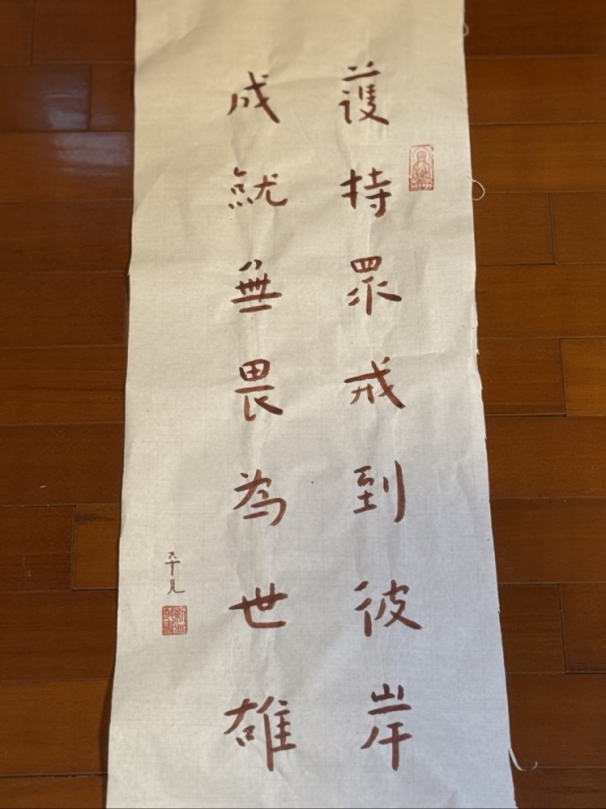 護持眾戒到彼岸
成就無畏為世雄